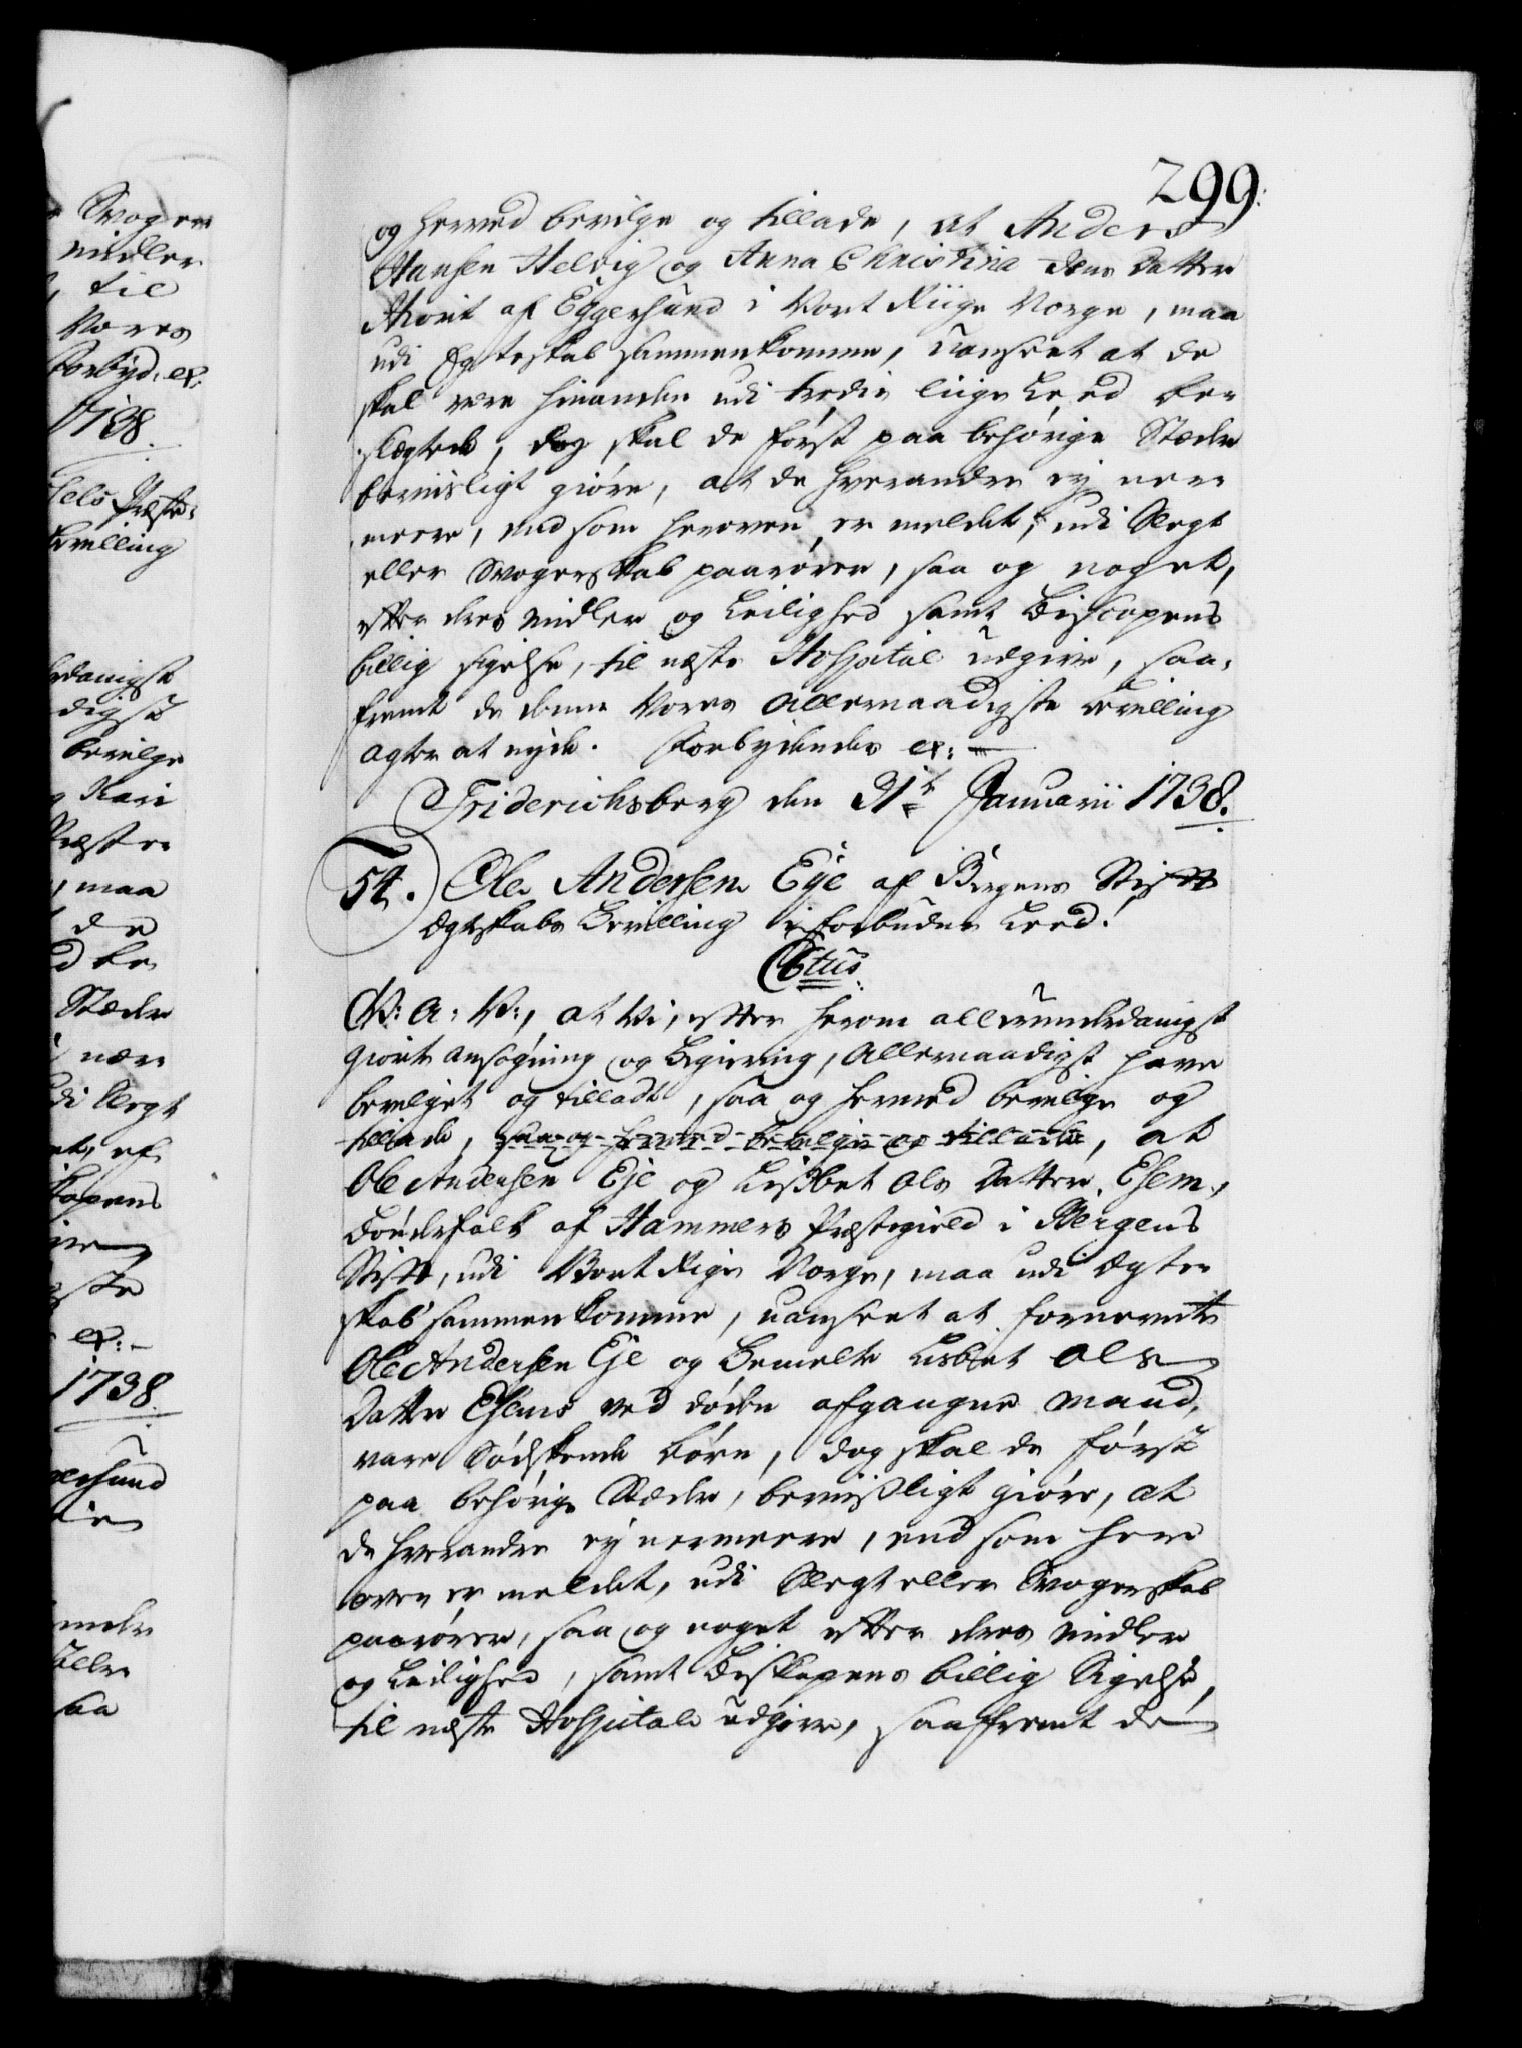 299.
og herved bevilge og tillade, at Anders
Hansen Helvig og Anna Christina Jens Datter
af Eggersund i Vort Riige Norge, maa
udi Egteskab sammenkomme, uanseet at de
skal være hinanden udi tredie liige Leed be-
slægtede, dog skal de først paa behørige Stæder
beviisligt giøre, at de hverandre ej nær-
meere, end som heroven er meldet, udi Slegt
eller Svogerskab paarører, saa og noget,
efter deres midler og Leilighed samt Biscopens
billig sigelse, til næste Hospital udgive, saa-
fremt de denne Vores Allernaadigste Bevilling
agter at nyde. Forbydendes etc:
Friderichsberg den 31te Januarii 1738.
54. Ole Andersen Eje af Bergens Stift
Egteskabs Bevilling i forbudne Leed.
C6tus.
G: A: V:, at Vi, efter herom allerunderdanigst
giorte ansøgning og Begiering, Allernaadigst have
bevilget og tilladt, saa og herved bevilge og
tillade, saa og herved bevilge og tillade, at
Ole Andersen Eje og Lisbet Ols Datter Eßem,
Bøndefolk af Hammers Præstegield i Bergens
Stift, udi Vort Rige Norge, maa udi Egte-
skab sammenkomme, uanseet at fornevnte
Ole Andersen Eje og Bemelte Lisbet Ols
Datter Eßems ved døden afgangne mand,
vare Sødskende Børn, dog skal de først
paa behørige Stæder, bevißligt giøre, at
de hverandre ej nermeere, end som her-
oven er meldet, udi Slegt eller Svogerskab
paarører, saa og noget efter deres midler
og Leilighed, samt Biskopens billig Sigelse,
til næste Hospitale udgive, saafremt de